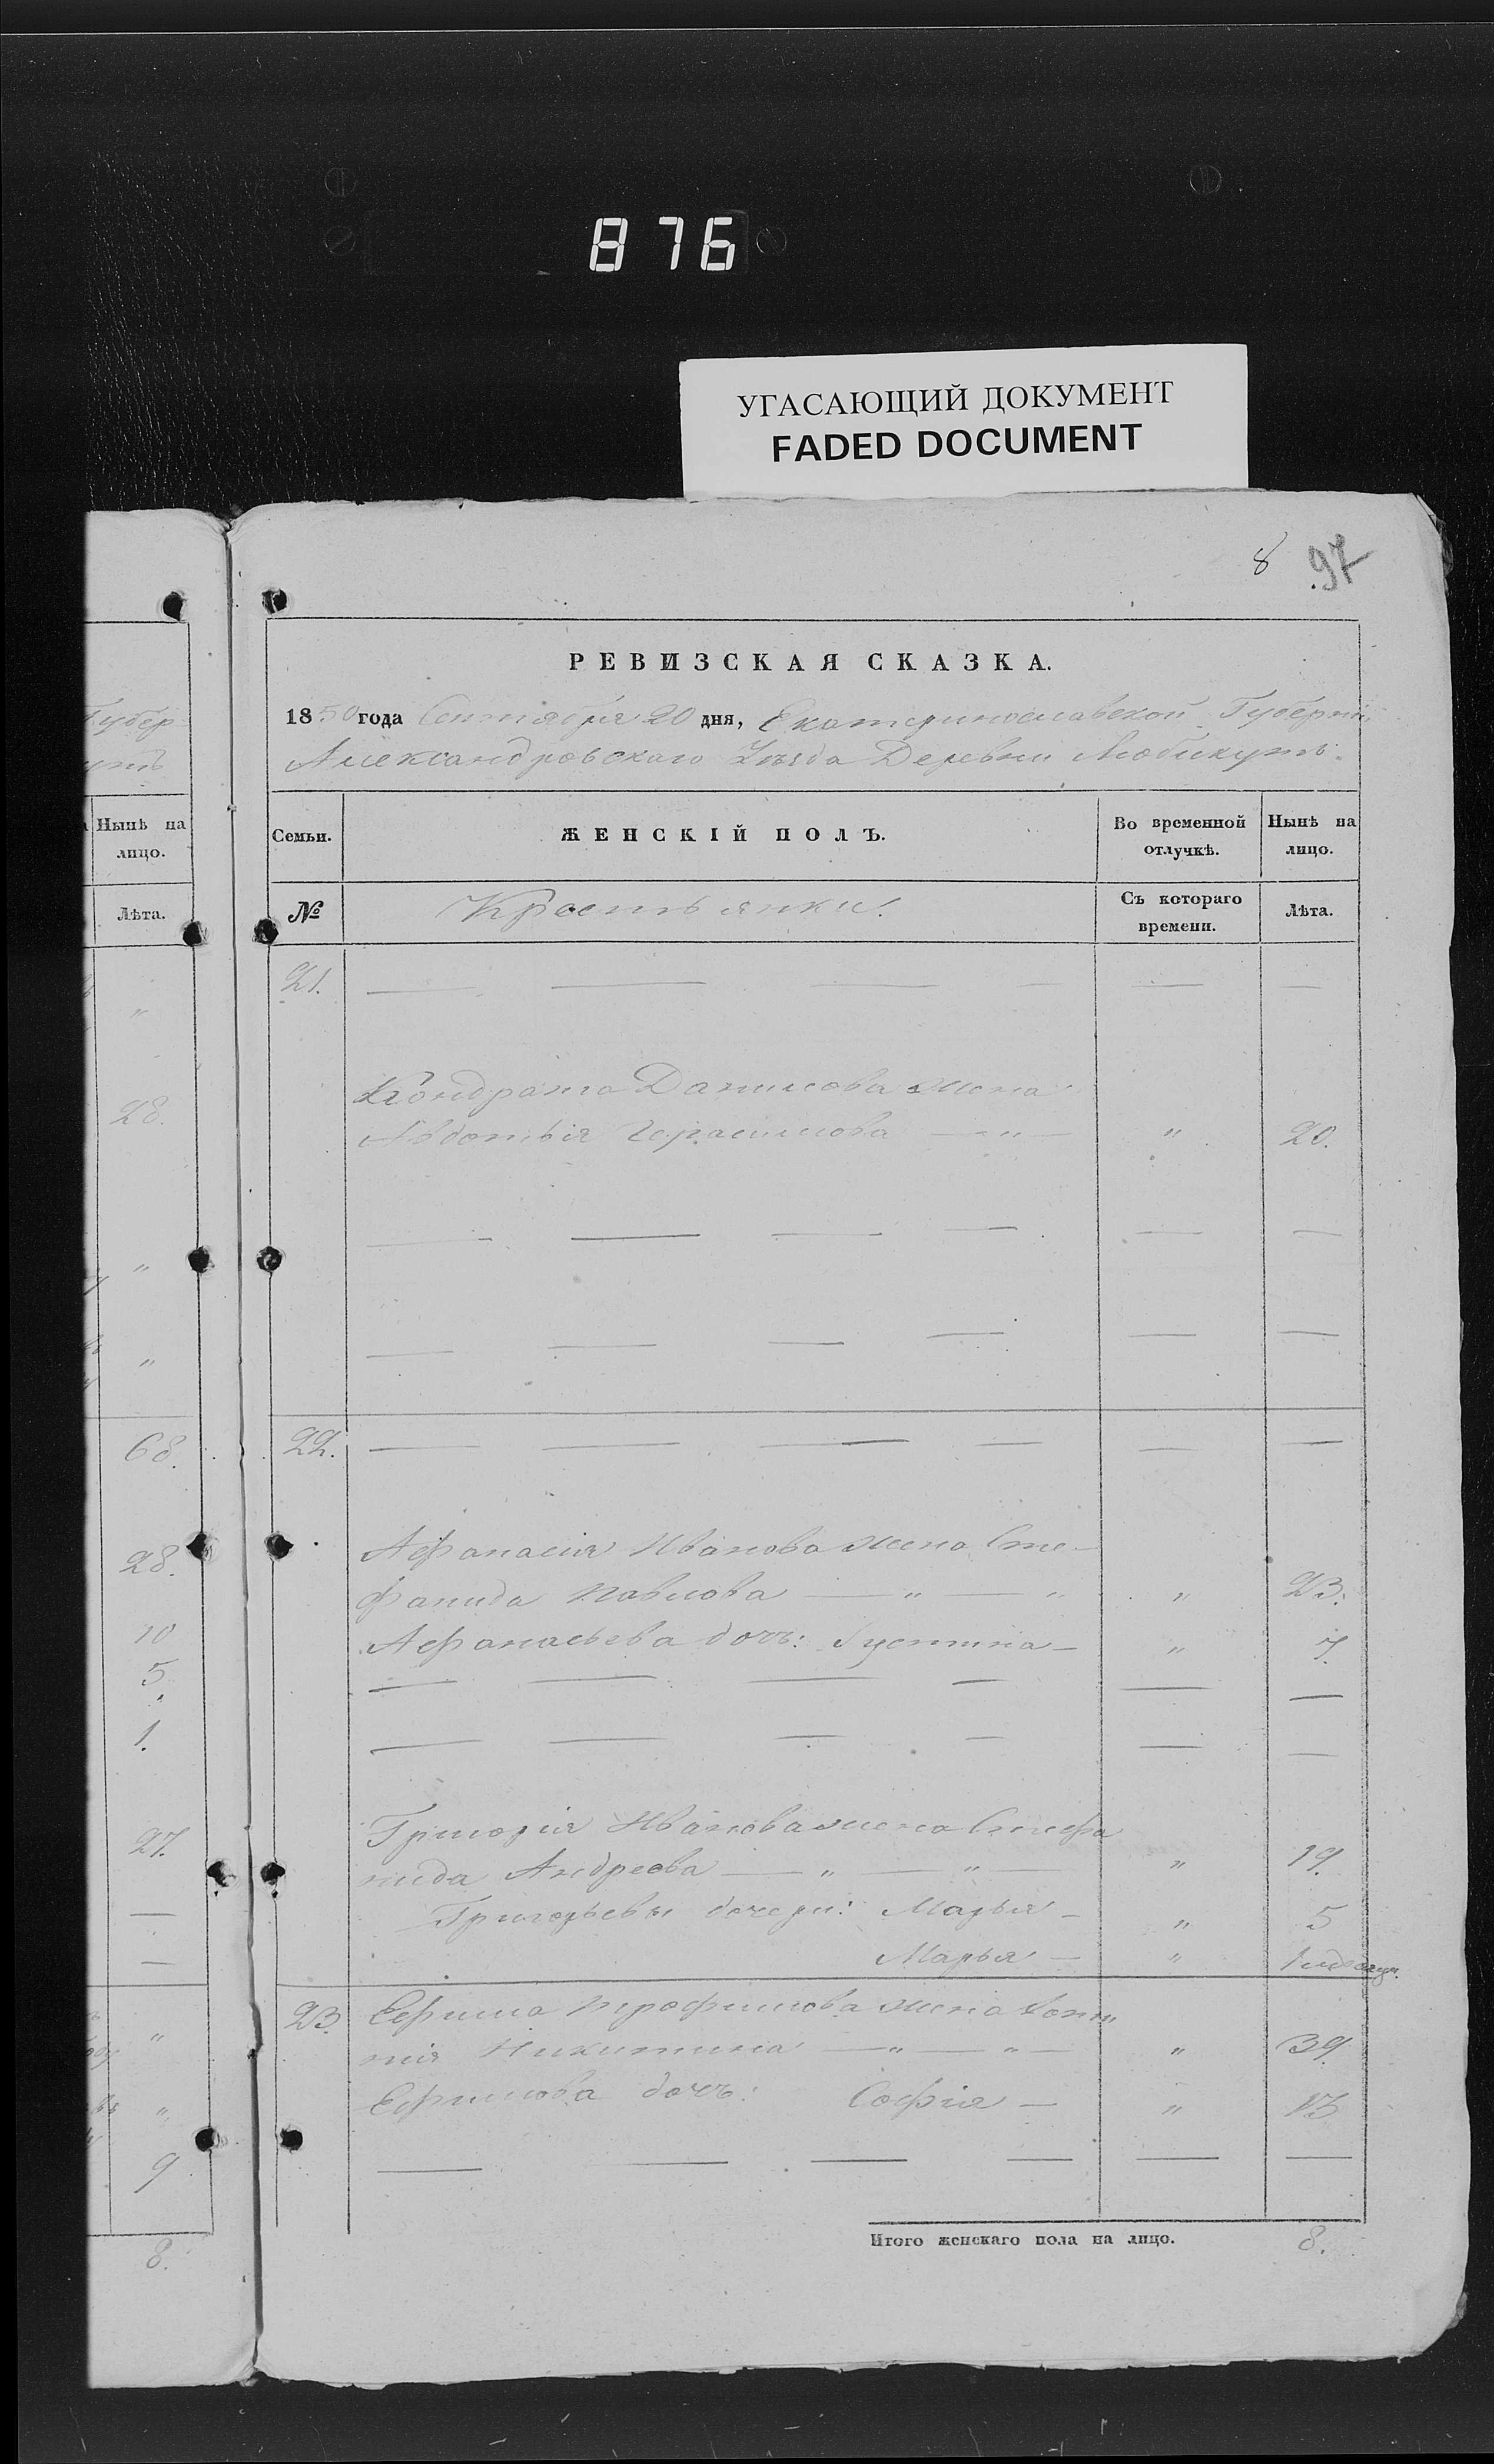 876
УГАСАЮЩИЙ ДОКУМЕНТ
FADED DOCUMENT
8 97
РЕВИЗСКАЯ СКАЗКА.
1850 года Сентября 20 дня, Екатеринославской Губерніи
Александровскаго Уѣзда Деревни Любикутъ.
Губер
Нынѣ на лицо.
Семьи.
ЖЕНСКІЙ ПОЛЪ.
Во временной отлучкѣ.
Нынѣ на лицо.
Лѣта.
№
Крестьянки.
Съ котораго времени.
Лѣта.
21. — — — — — —
"
Кондрата Данилова жена
28.
Авдотья Герасимова — " — " 20.
— — — — — —
"
— — — — — —
"
68.
22. — — — — — —
Афанасія Иванова жена Сте-
28.
фанида Павлова — " — " " 23.
10
Афанасьева дочь: Густина — " 7.
5.
— — — — — —
1.
— — — — — —
Григорія Иванова жена Стефа
27.
нида Андреева — " — " — " 19.
Григорьевы дочери: Марья — " 5
Марья — "
23. Ефима Трофимова жена
"
Никитина — " — " — " 39.
Ефимова дочь: Софія — " 13
"
— — — — — —
9
Итого женскаго пола на лицо. 8.
8.